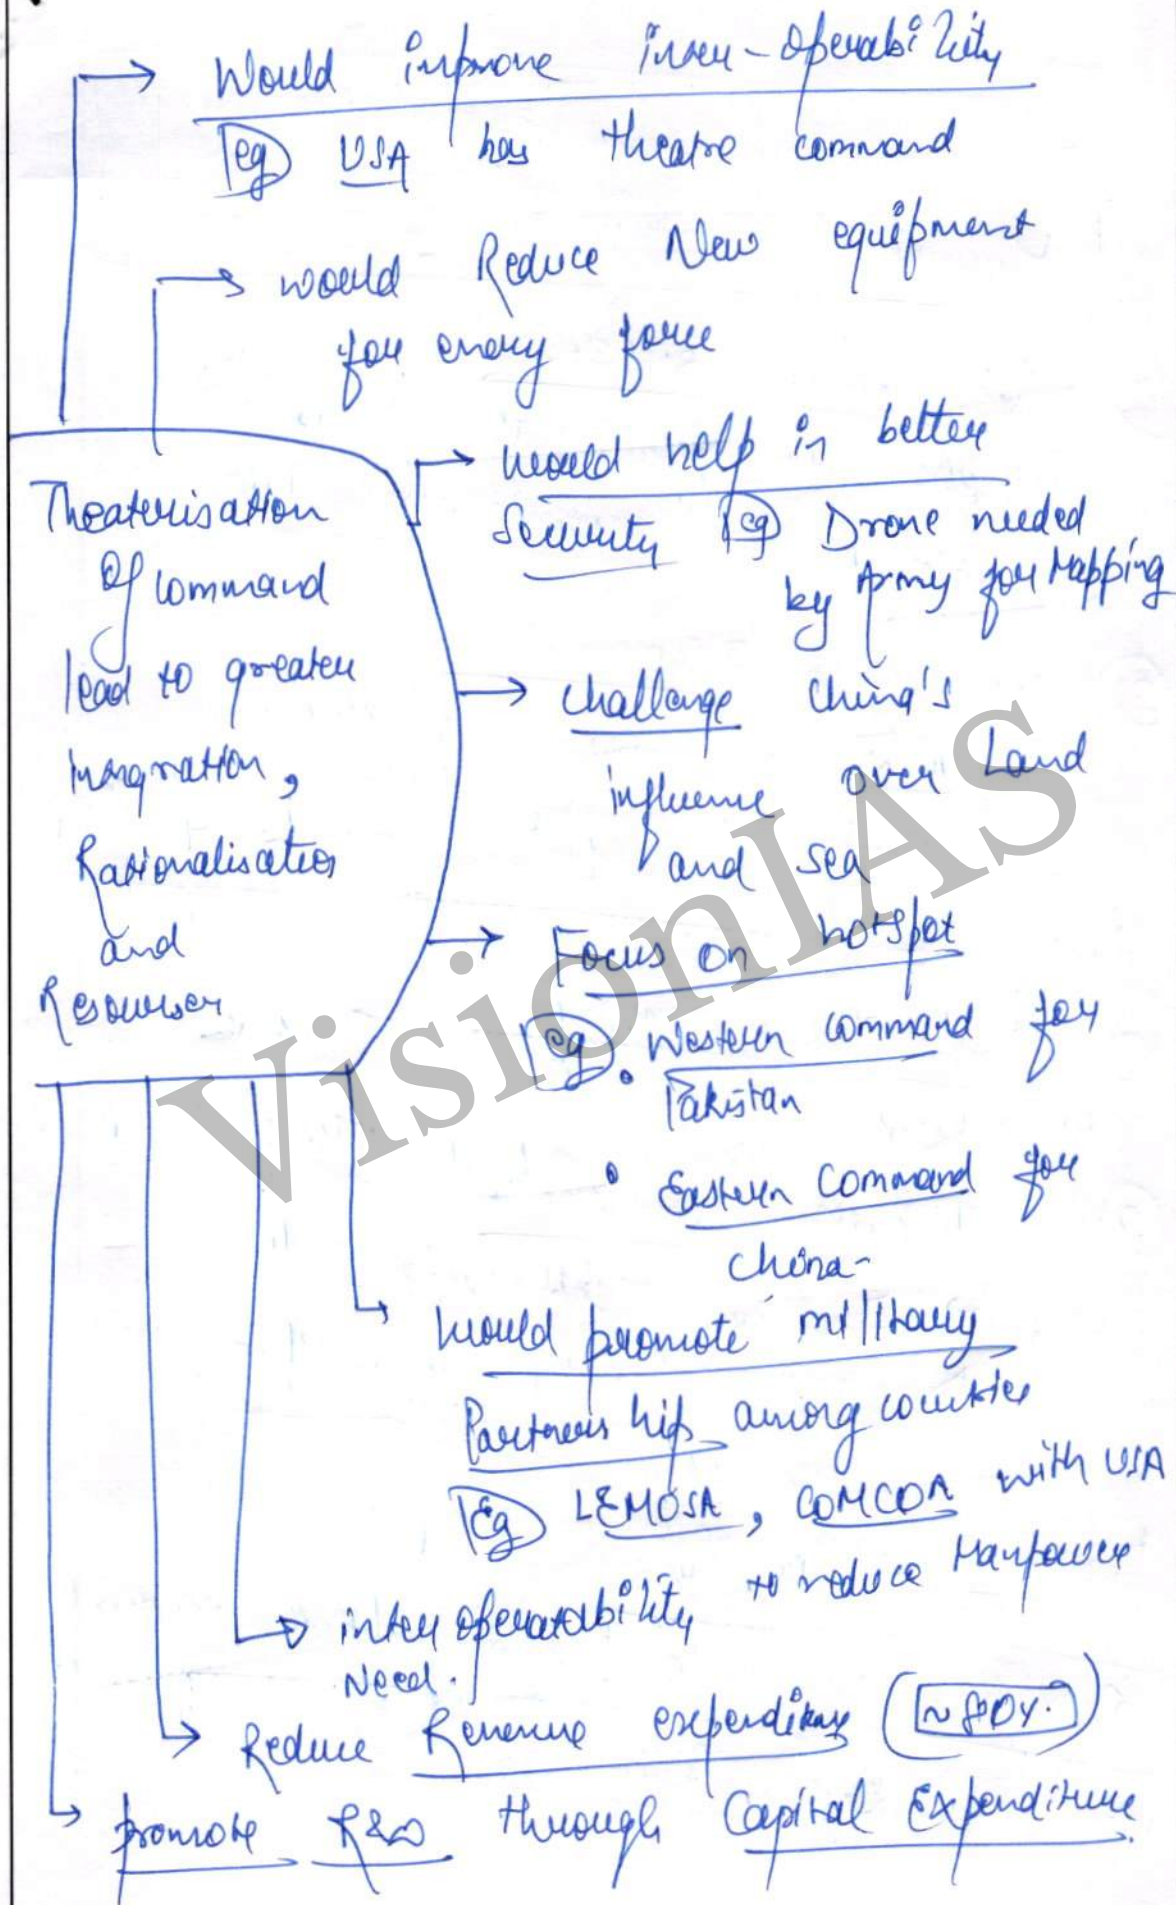 Would improve inter-operability
eg USA has theatre command
would Reduce New equipment
for every force
Theaterisation
Of Command
lead to greater
Rationalisation
and
Resources
would help in better
Security eg Drone needed
by Army for Mapping
challenge China's
influence over Land
and sea
Focus on hotspot
eg • Western Command for
Pakistan
• Eastern Command for
China-
would promote military
Partnership among countries
Eg LEMOSA, COMCOA with USA
interoperatability to reduce Manpower
Need.
Reduce Revenue expenditure
promote R&D through Capital Expenditure
VisionIAS